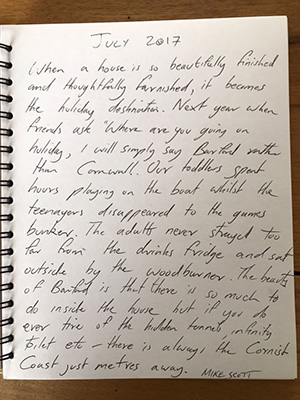 JULY 2017
When a house is so beautifully finished
and thoughtfully furnished, it becomes
the holiday destination. Next year when
friends ask "Where are you going on
holiday, I will simply say Barford rather
than Cornwall. Our toddlers spent
hours playing on the boat whilst the
teenagers disappeared to the games
bunker. The adults never strayed too
far from the drinks fridge and sat
outside by the woodburner. The beauty
of Barford is that there is so much to
do inside the house but if you do
ever tire of the hidden tunnel, infinity
toilet etc – there is always the Cornish
Coast just metres away. MIKE SCOTT